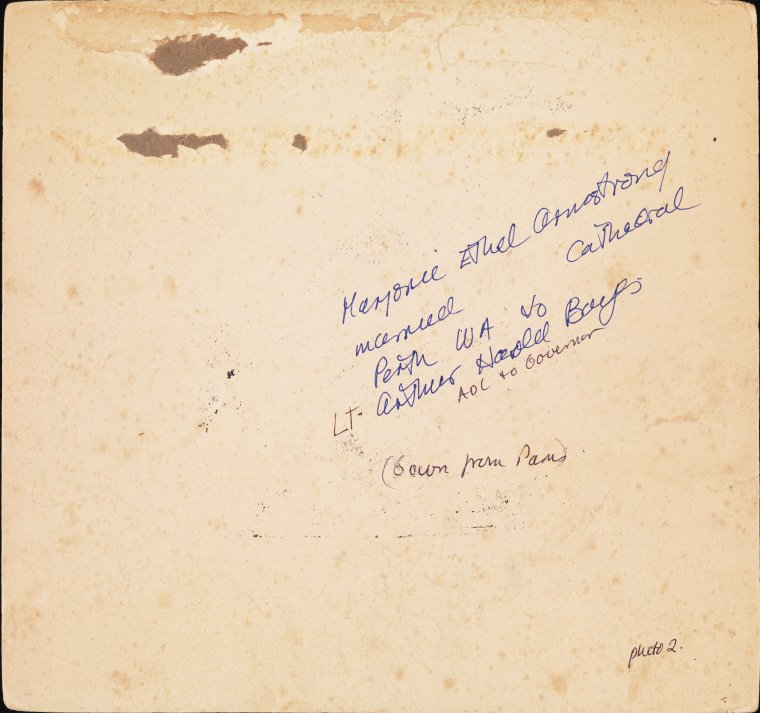 Marjorie Ethel Armstrong
married Cathedral
Perth WA to
Lt. Arthur Harold
ADC to Governor
(Gown from Paris)
photo 2.